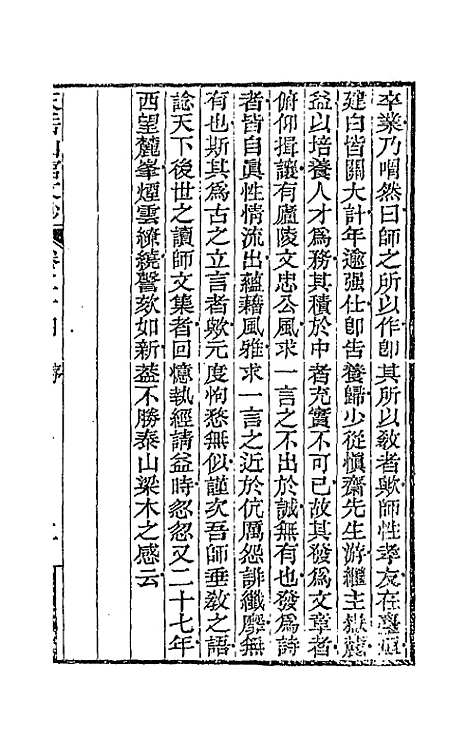 卒業乃喟然曰師之所以作卽其所以敎者歟師性孝友在臺垣
建白皆關大計年逾强仕卽告養歸少從愼齋先生游繼主嶽麓
益以培養人才爲務其積於中者充實不可已故其發爲文章者
俯仰揖讓有廬陵文忠公風求一言之不出於誠無有也發爲詩
者皆自眞性情流出蘊藉風雅求一言之近於伉厲怨誹纖靡無
有也斯其爲古之立言者歟元度恂愁無似謹次吾師垂敎之語
諗天下後世之讀師文集者回憶執經請益時忽忽又二十七年
西望麓峯煙雲繚繞謦欬如新葢不勝泰山梁木之感云
天岳山館文鈔 卷二十四 序